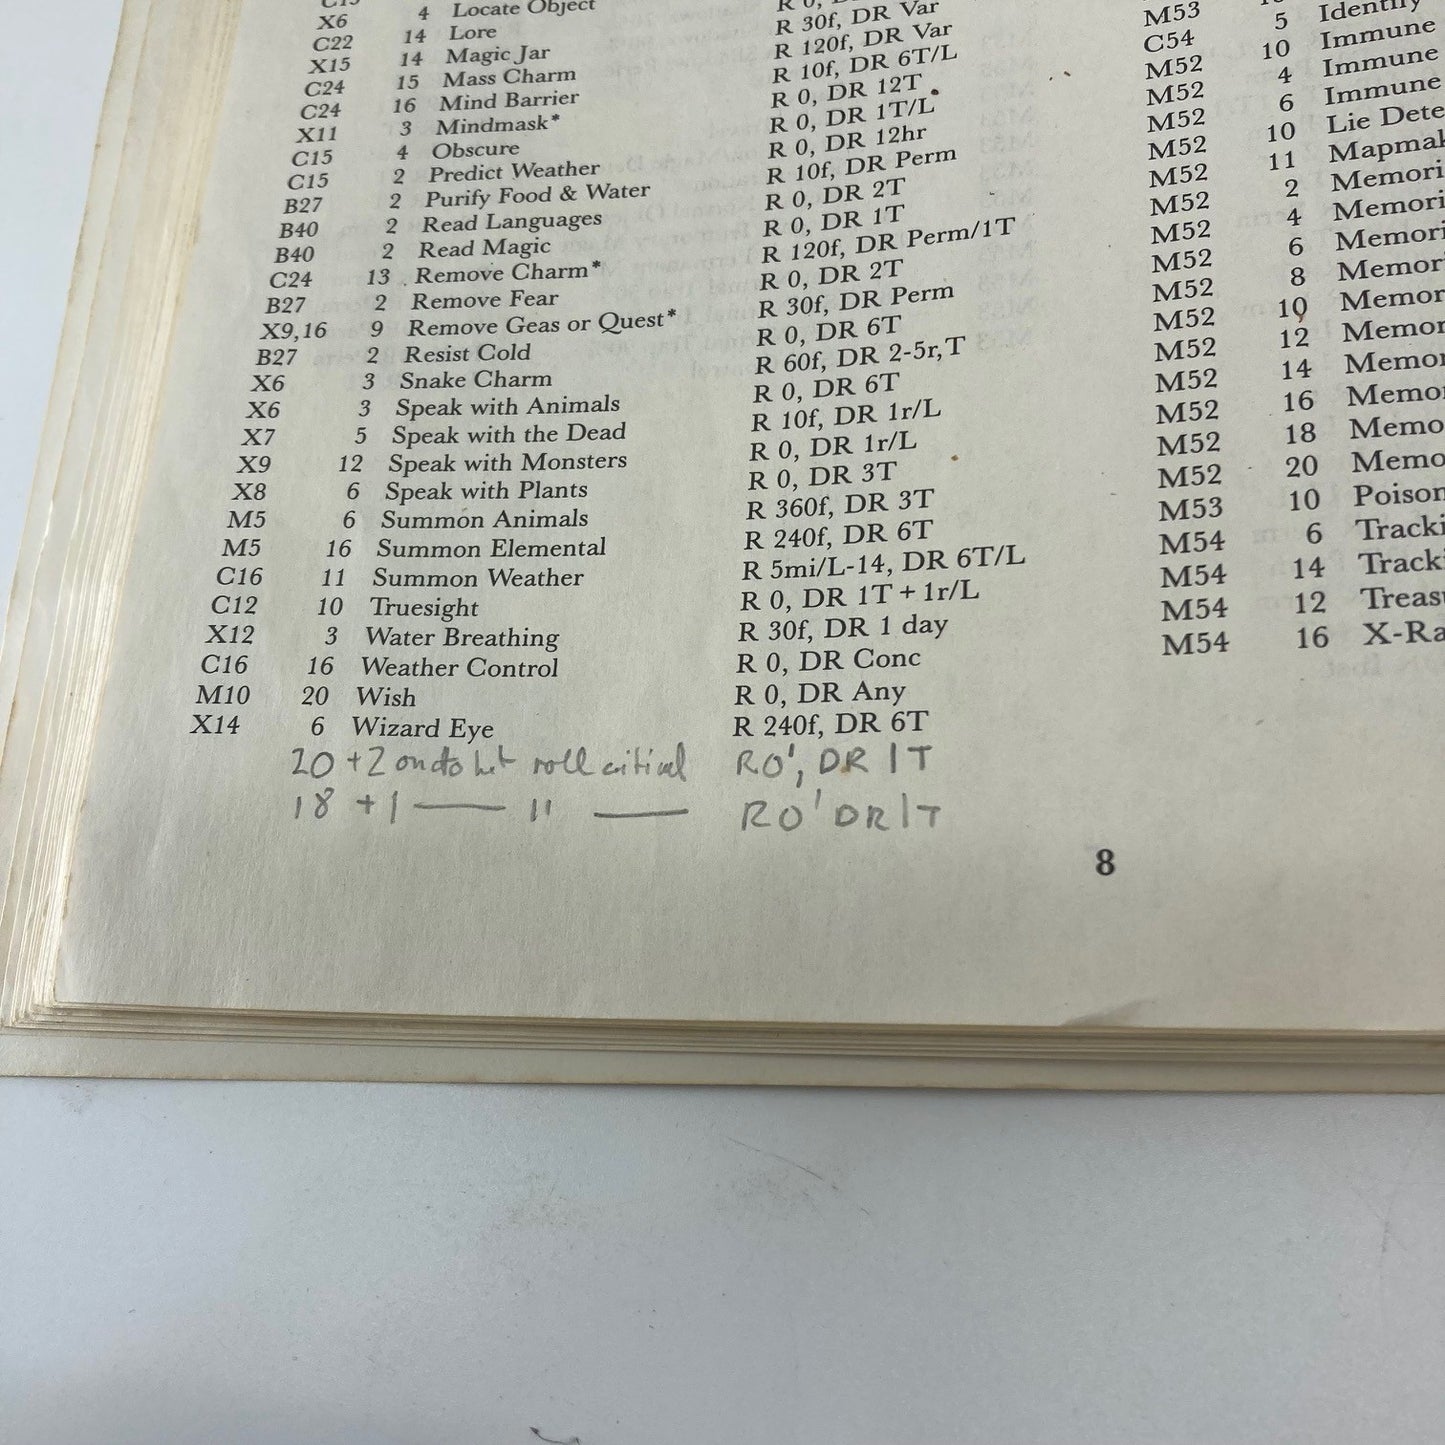 X6 4 Locate Object
C22 14 Lore
X15 14 Magic Jar R 30f, DR Var
C24 15 Mass Charm R 120f, DR Var
C24 16 Mind Barrier R 10f, DR 6T/L
X11 3 Mindmask* R 0, DR 12T
C15 4 Obscure R 0, DR 1T/L
C15 2 Predict Weather R 0, DR 12hr
B27 2 Purify Food & Water R 10f, DR Perm
B40 2 Read Languages R 0, DR 2T
B40 2 Read Magic R 0, DR 1T
C24 13 Remove Charm* R 120f, DR Perm/1T
B27 2 Remove Fear R 0, DR 2T
X9,16 9 Remove Geas or Quest* R 30f, DR Perm
B27 2 Resist Cold R 0, DR 6T
X6 3 Snake Charm R 60f, DR 2-5r,T
X6 3 Speak with Animals R 0, DR 6T
X7 5 Speak with the Dead R 10f, DR 1r/L
X9 12 Speak with Monsters R 0, DR 1r/L
X8 6 Speak with Plants R 0, DR 3T
M5 6 Summon Animals R 360f, DR 3T
M5 16 Summon Elemental R 240f, DR 6T
C16 11 Summon Weather R 5mi/L-14, DR 6T/L
C12 10 Truesight R 0, DR 1T + 1r/L
X12 3 Water Breathing R 30f, DR 1 day
C16 16 Weather Control R 0, DR Conc
M10 20 Wish R 0, DR Any
X14 6 Wizard Eye R 240f, DR 6T
20 +2 on to hit roll critical R0', DR 1T
18 +1 —— " —— R0' DR 1T
M53
C54 5 Identify
M52 10 Immune
M52 4 Immune
M52 6 Immune
M52 10 Lie Dete
M52 11 Mapmak
M52 2 Memori
M52 4 Memori
M52 6 Memori
M52 8 Memori
M52 10 Memor
M52 12 Memor
M52 14 Memor
M52 16 Memor
M52 18 Memo
M52 20 Memo
M53 10 Poison
M54 6 Tracki
M54 14 Tracki
M54 12 Treasu
M54 16 X-Ra
8